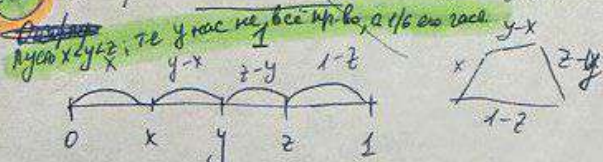 Пусть x<y<z, т.е у нас не всё пр-во, а 1/6 его часть
1
x y-x z-y 1-z
0 x y z 1
y-x
x z-y
1-z